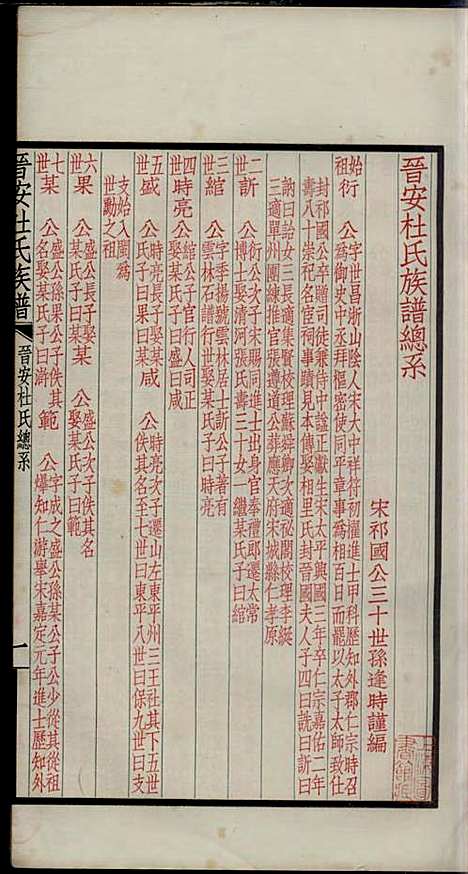 晉安杜氏族譜總系
宋祁國公三十世孫逢時謹編
始祖衍 公字世昌浙山陰人宋大中祥符初擢進士甲科歷知外郡仁宗時召
為御史中丞拜樞密使同平章事為相百日而罷以太子太師致仕
封祁國公卒贈司徒兼侍中諡正獻生宋太平興國三年卒仁宗嘉佑二年
壽八十崇祀名宦祠事績見本傳娶相里氏封晉國夫人子四曰詵曰訢曰
訥曰詒女三長適集賢校理蘇舜卿次適秘閣校理李綖
三適單州團練推官張遵道公葬應天府宋城縣仁孝原
二世訢 公衍公次子宋賜同進士出身官奉禮郎遷太常
博士娶清河張氏壽三十女一繼某氏子曰綰
三世綰 公字季揚號雲林居士訢公子著有
雲林石譜行世娶某氏子曰時亮
四世時亮 公綰公子官行人司正
娶某氏子曰盛曰咸
五世盛 公時亮長子娶
某氏子曰果曰某 咸 公時亮次子遷山左東平州三王社其下五世
佚其名至七世曰東平八世曰保九世曰支
支始入閩為
世勳之祖
六世果 公盛公長子娶
某氏子曰某 某 公盛公次子佚其名
娶某氏子曰範
七世某 公盛公孫果公子佚其
名娶某氏子曰滸 範 公字成之盛公孫某公子公少從其從祖
燁知仁游舉宋嘉定元年進士歷知外
晉安杜氏族譜
晉安杜氏總系
一